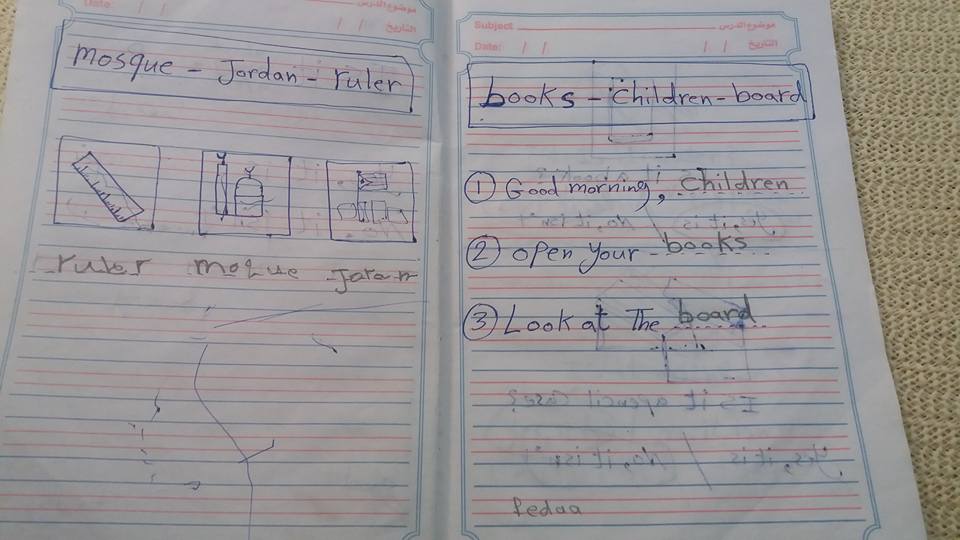 Date: / /
موضوع الدرس
/ / التاريخ
mosque - Jordan - ruler
ruler moque Joran
Subject موضوع الدرس
Date: / / / / التاريخ
books - children - board
① Good morning, children
② open your books
③ Look at The board
Is it a pencil case?
Yes, it is / No, it isn't
Fedaa